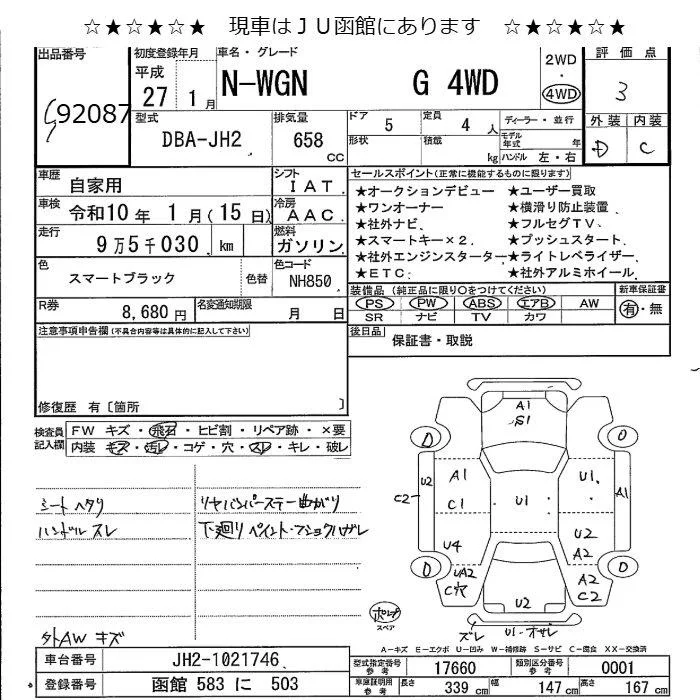 ☆★☆★☆★　現車はＪＵ函館にあります　☆★☆★☆★
出品番号
92087
初度登録年月
平成
27 1月
車名・グレード
N-WGN G 4WD
2WD
・
4WD
評価点
3
外装 内装
D C
型式
DBA-JH2
排気量
658
CC
ドア 5
定員 4 人
形状
積載 kg
ディーラー・並行
モデル年式 年
ハンドル 左・右
車歴
自家用
シフト
I A T
車検
令和10年 1月(15日)
冷房
A A C
走行
9万5千030 km
燃料
ガソリン
色
スマートブラック
色替
色コード
NH850
R券
8,680円
名変通知期限
月 日
セールスポイント(正常に機能するものに限ります)
★オークションデビュー ★ユーザー買取
★ワンオーナー ★横滑り防止装置
★社外ナビ ★フルセグTV
★スマートキー×2 ★プッシュスタート
★社外エンジンスターター ★ライトレベライザー
★ETC ★社外アルミホイール
装備品(純正品に限り○をつけてください)
PS PW ABS エアB AW
SR ナビ TV カワ
新車保証書
有・無
後日品
保証書・取説
注意事項申告欄(不具合内容等は具体的に記入して下さい)
修復歴 有〔箇所 〕
検査員記入欄
FW キズ・飛石・ヒビ割・リペア跡・×要
内装 キズ・汚レ・コゲ・穴・スレ・キレ・破レ
シートヘタリ
ハンドルスレ
リヤバンパーステー曲がり
下廻りペイント・アショクハガレ
外AWキズ
A1
S1
D
O
U2
C2
A1
C1
U1
U1
A1
U4
U2
A2
D
UA2
C穴
A2
C2
D
U2
スレ
U1・オサレ
スペア
A-キズ E-エクボ U-凹み W-補修跡 S-サビ C-腐食 XX-交換済
車台番号
JH2-1021746
登録番号
函館 583 に 503
型式指定番号
参考
17660
類別区分番号
参考
0001
車庫証明用
参考
長さ 339 cm
幅 147 cm
高さ 167 cm